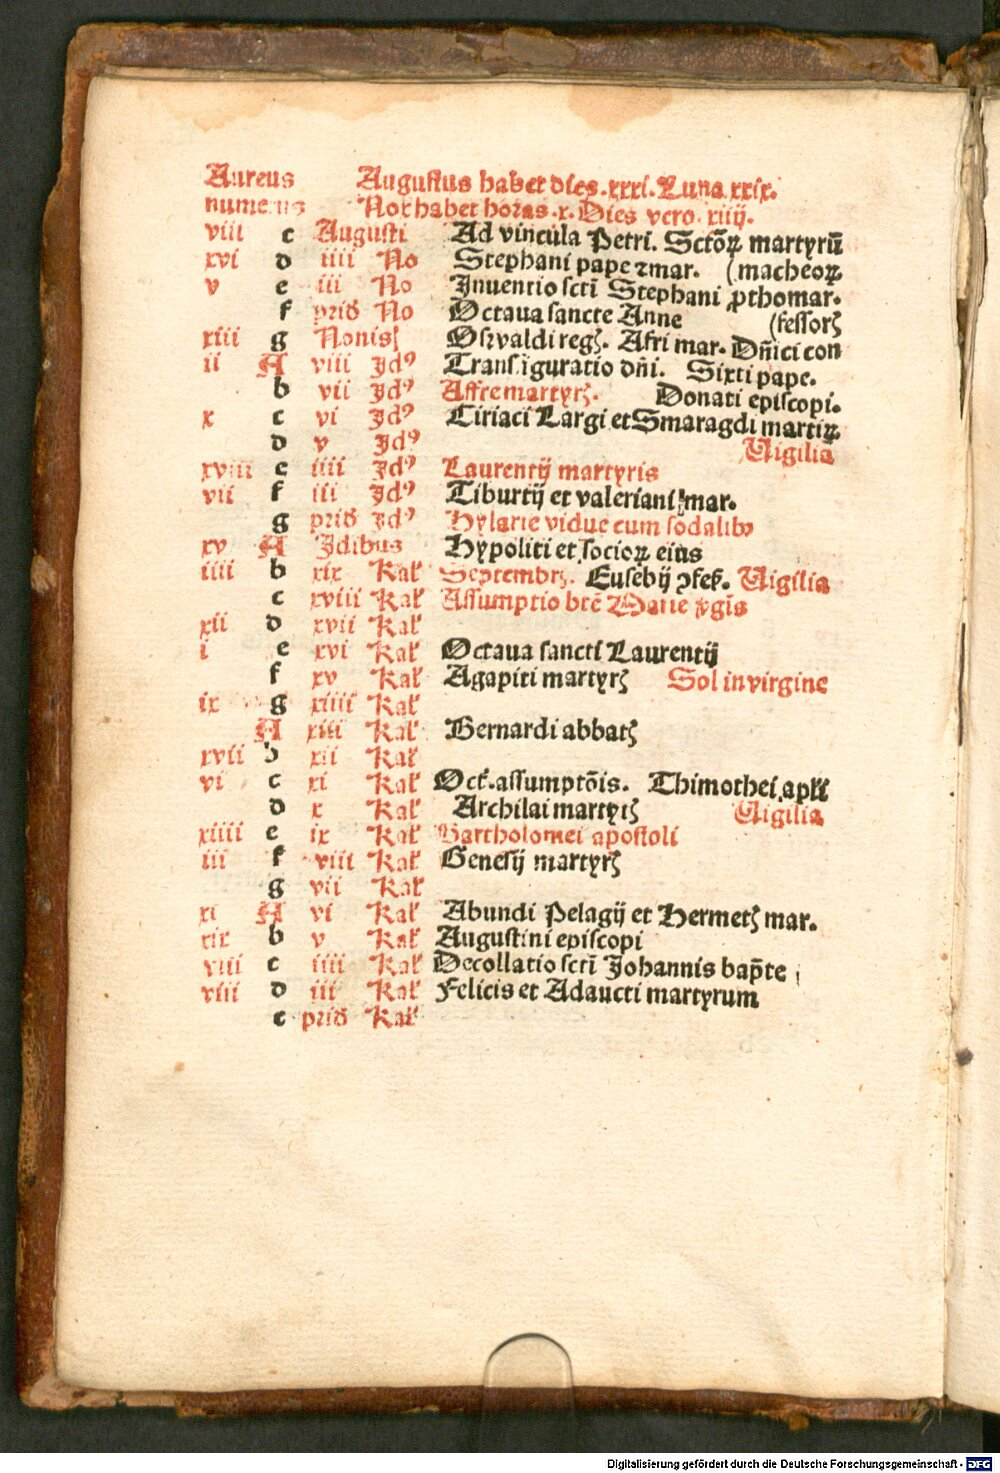 Aureus Augustus habet dies .xxxi. Luna xxix.
numerus Nox habet horas .x. Dies vero .xiiij.
viii c Augusti Ad vincula Petri. Sctōꝝ martyrū
xvi d iiii No Stephani pape ⁊ mar. (macheoꝝ
v e iii No Inuentio sctī Stephani ꝓthomar.
f prid No Octaua sancte Anne (fessorꝭ
xiii g Nonis Osvvaldi regꝭ. Afri mar. Dñici con
ii A viii Idꝰ Transfiguratio dñi. Sixti pape.
b vii Idꝰ Affre martyrꝭ. Donati episcopi.
x c vi Idꝰ Ciriaci Largi et Smaragdi martiꝝ
d v Idꝰ Uigilia
xviii e iiii Idꝰ Laurentij martyris
vii f iii Idꝰ Tiburtij et valeriani mar.
g prid Idꝰ Hylarie vidue cum sodalibꝰ
xv A Idibus Hypoliti et socioꝝ eius
iiii b xix Kal̓ Septembrꝭ. Eusebij ꝯfes. Uigilia
c xviii Kal̓ Assumptio btē Marie ꝟgīs
xii d xvii Kal̓
i e xvi Kal̓ Octaua sancti Laurentij
f xv Kal̓ Agapiti martyrꝭ Sol in virgine
ix g xiiii Kal̓
A xiii Kal̓ Bernardi abbatꝭ
xvii b xii Kal̓
vi c xi Kal̓ Oct̓. assumptōis. Thimothei apl̓i
d x Kal̓ Archilai martyrꝭ Uigilia
xiiii e ix Kal̓ Bartholomei apostoli
iii f viii Kal̓ Genesij martyrꝭ
g vii Kal̓
xi A vi Kal̓ Abundi Pelagij et Hermetꝭ mar.
xix b v Kal̓ Augustini episcopi
viii c iiii Kal̓ Decollatio sctī Johannis bap̄te
d iii Kal̓ Felicis et Adaucti martyrum
e prid Kal̓
Digitalisierung gefördert durch die Deutsche Forschungsgemeinschaft - DFG